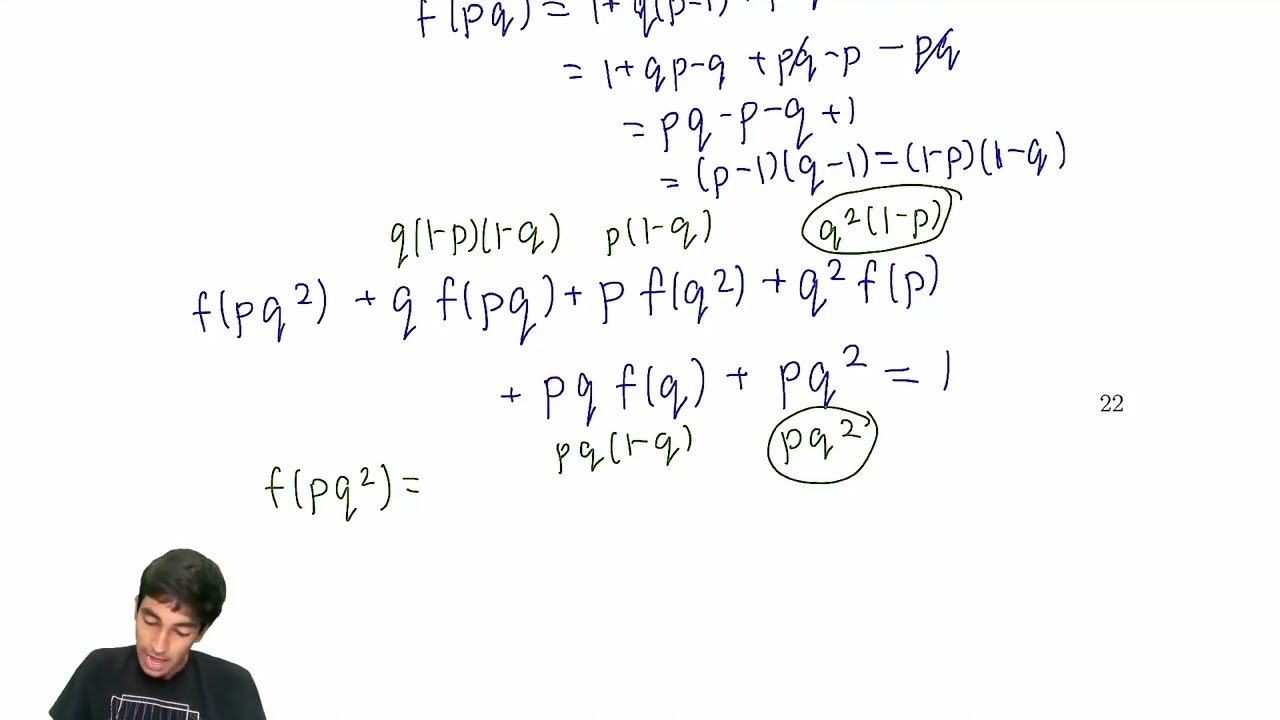 f(pq) = 1 + q(p-1)
= 1 + qp - q + pq - p - pq
= pq - p - q + 1
= (p-1)(q-1) = (1-p)(1-q)
q(1-p)(1-q) p(1-q) q²(1-p)
f(pq²) + q f(pq) + p f(q²) + q² f(p)
+ pq f(q) + pq² = 1
22
pq(1-q) pq²
f(pq²) =